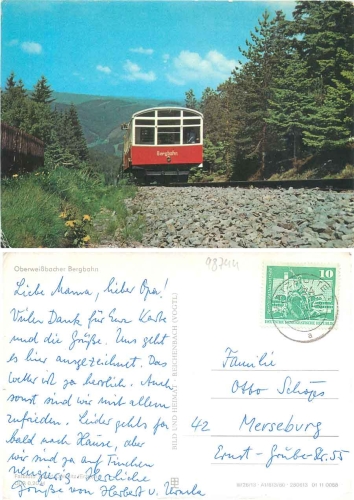 Bergbahn
Oberweißbacher Bergbahn
Liebe Mama, lieber Opa!
Vielen Dank für Eure Karte
und die Grüße. Uns geht
es hier ausgezeichnet. Das
Wetter ist ja herrlich. Auch
sonst sind wir mit allem
zufrieden. Leider gehts so
bald nach Hause, aber
wir sind ja auf
neugierig. Herzliche
Grüße von Herbert u. Ursula
BILD UND HEIMAT REICHENBACH (VOGTL)
10
Familie
Otto Schöps
42 Merseburg
Ernst-Grube-Str. 55